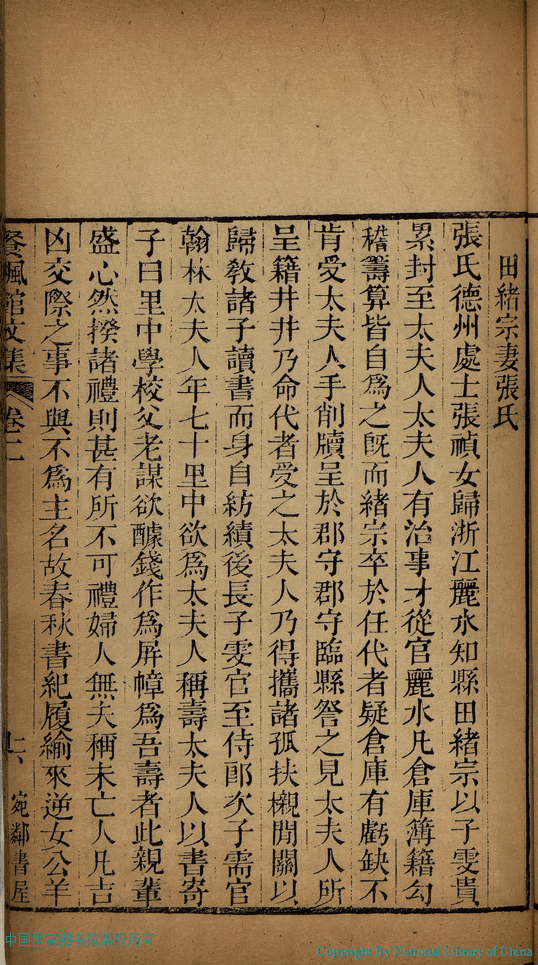 田緒宗妻張氏
張氏德州處士張禎女歸浙江麗水知縣田緒宗以子雯貴
累封至太夫人太夫人有治事才從官麗水凡倉庫簿籍勾
稽籌算皆自爲之旣而緒宗卒於任代者疑倉庫有虧缺不
肯受太夫人手削牘呈於郡守郡守臨縣詧之見太夫人所
呈籍井井乃命代者受之太夫人乃得攜諸孤扶櫬閒關以
歸敎諸子讀書而身自紡績後長子雯官至侍郎次子需官
翰林太夫人年七十里中欲爲太夫人稱壽太夫人以書寄
子曰里中學校父老謀欲醵錢作爲屏幛爲吾壽者此親軰
盛心然揆諸禮則甚有所不可禮婦人無夫稱未亡人凡吉
凶交際之事不與不爲主名故春秋書紀履緰來逆女公羊
餐楓館文集 卷二
宛鄰書屋
中国国家图书馆
Copyright By National Library of China